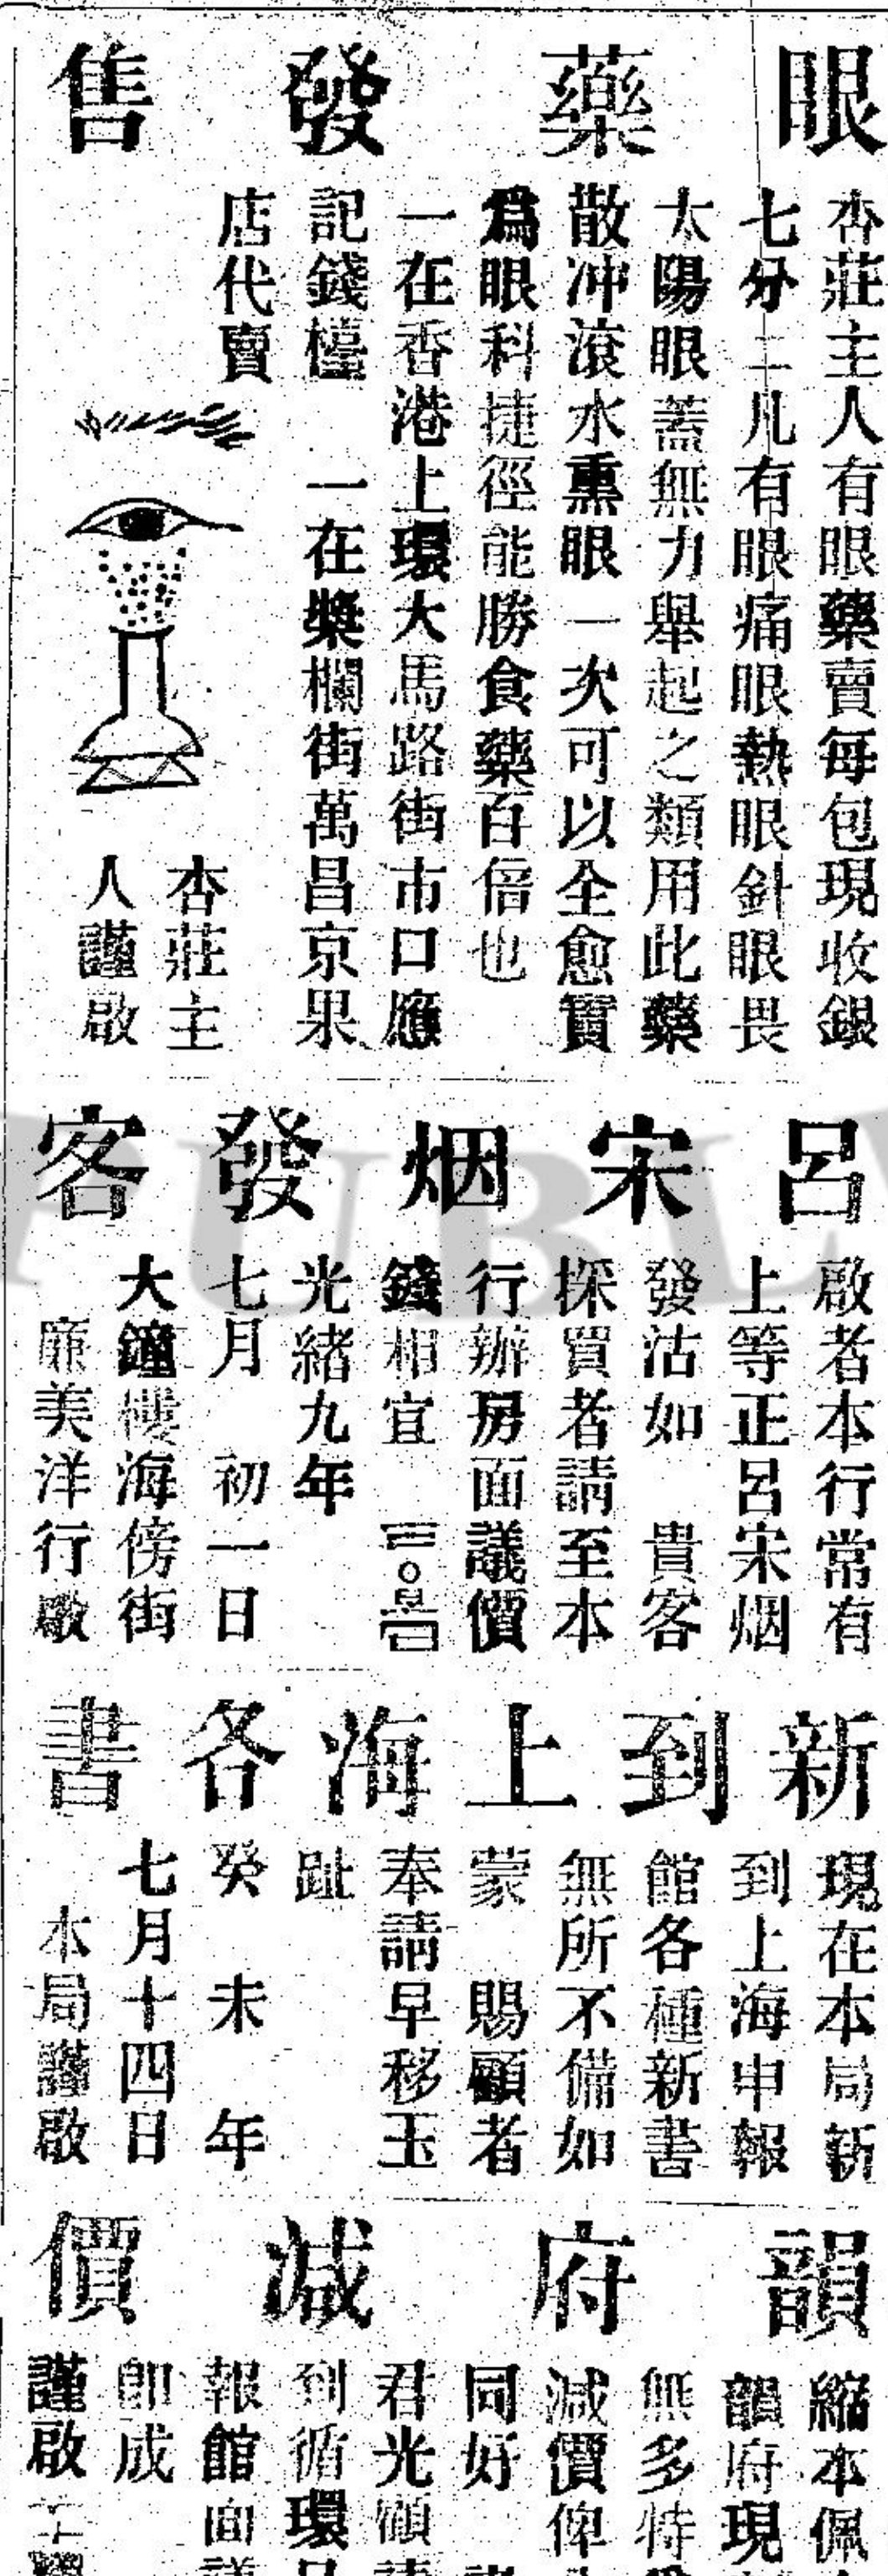 眼藥發售
杏莊主人有眼藥賣每包現收銀
七分二凡有眼痛眼熱眼針眼畏
太陽眼蓋無力舉起之類用此藥
散冲滾水熏眼一次可以全愈實
爲眼科捷徑能勝食藥百倍也
一在香港上環大馬路街市口應
記錢檯 一在槳欄街萬昌京果
店代賣
杏莊主
人謹啟
呂宋烟發客
啟者本行常有
上等正呂宋烟
發沽如 貴客
採買者請至本
行辦房面議價
錢相宜
光緒九年
七月 初一日
大鐘樓海傍街
廉美洋行啟
新到上海各書
現在本局新
到上海申報
館各種新書
無所不備如
蒙 賜顧者
奉請早移玉
趾
癸 未 年
七月十四日
本局謹啟
韻府減價
縮本佩
韻府現
無多特
減價俾
同好
君光顧
到循環
報館面
即成
謹啟
PUBL